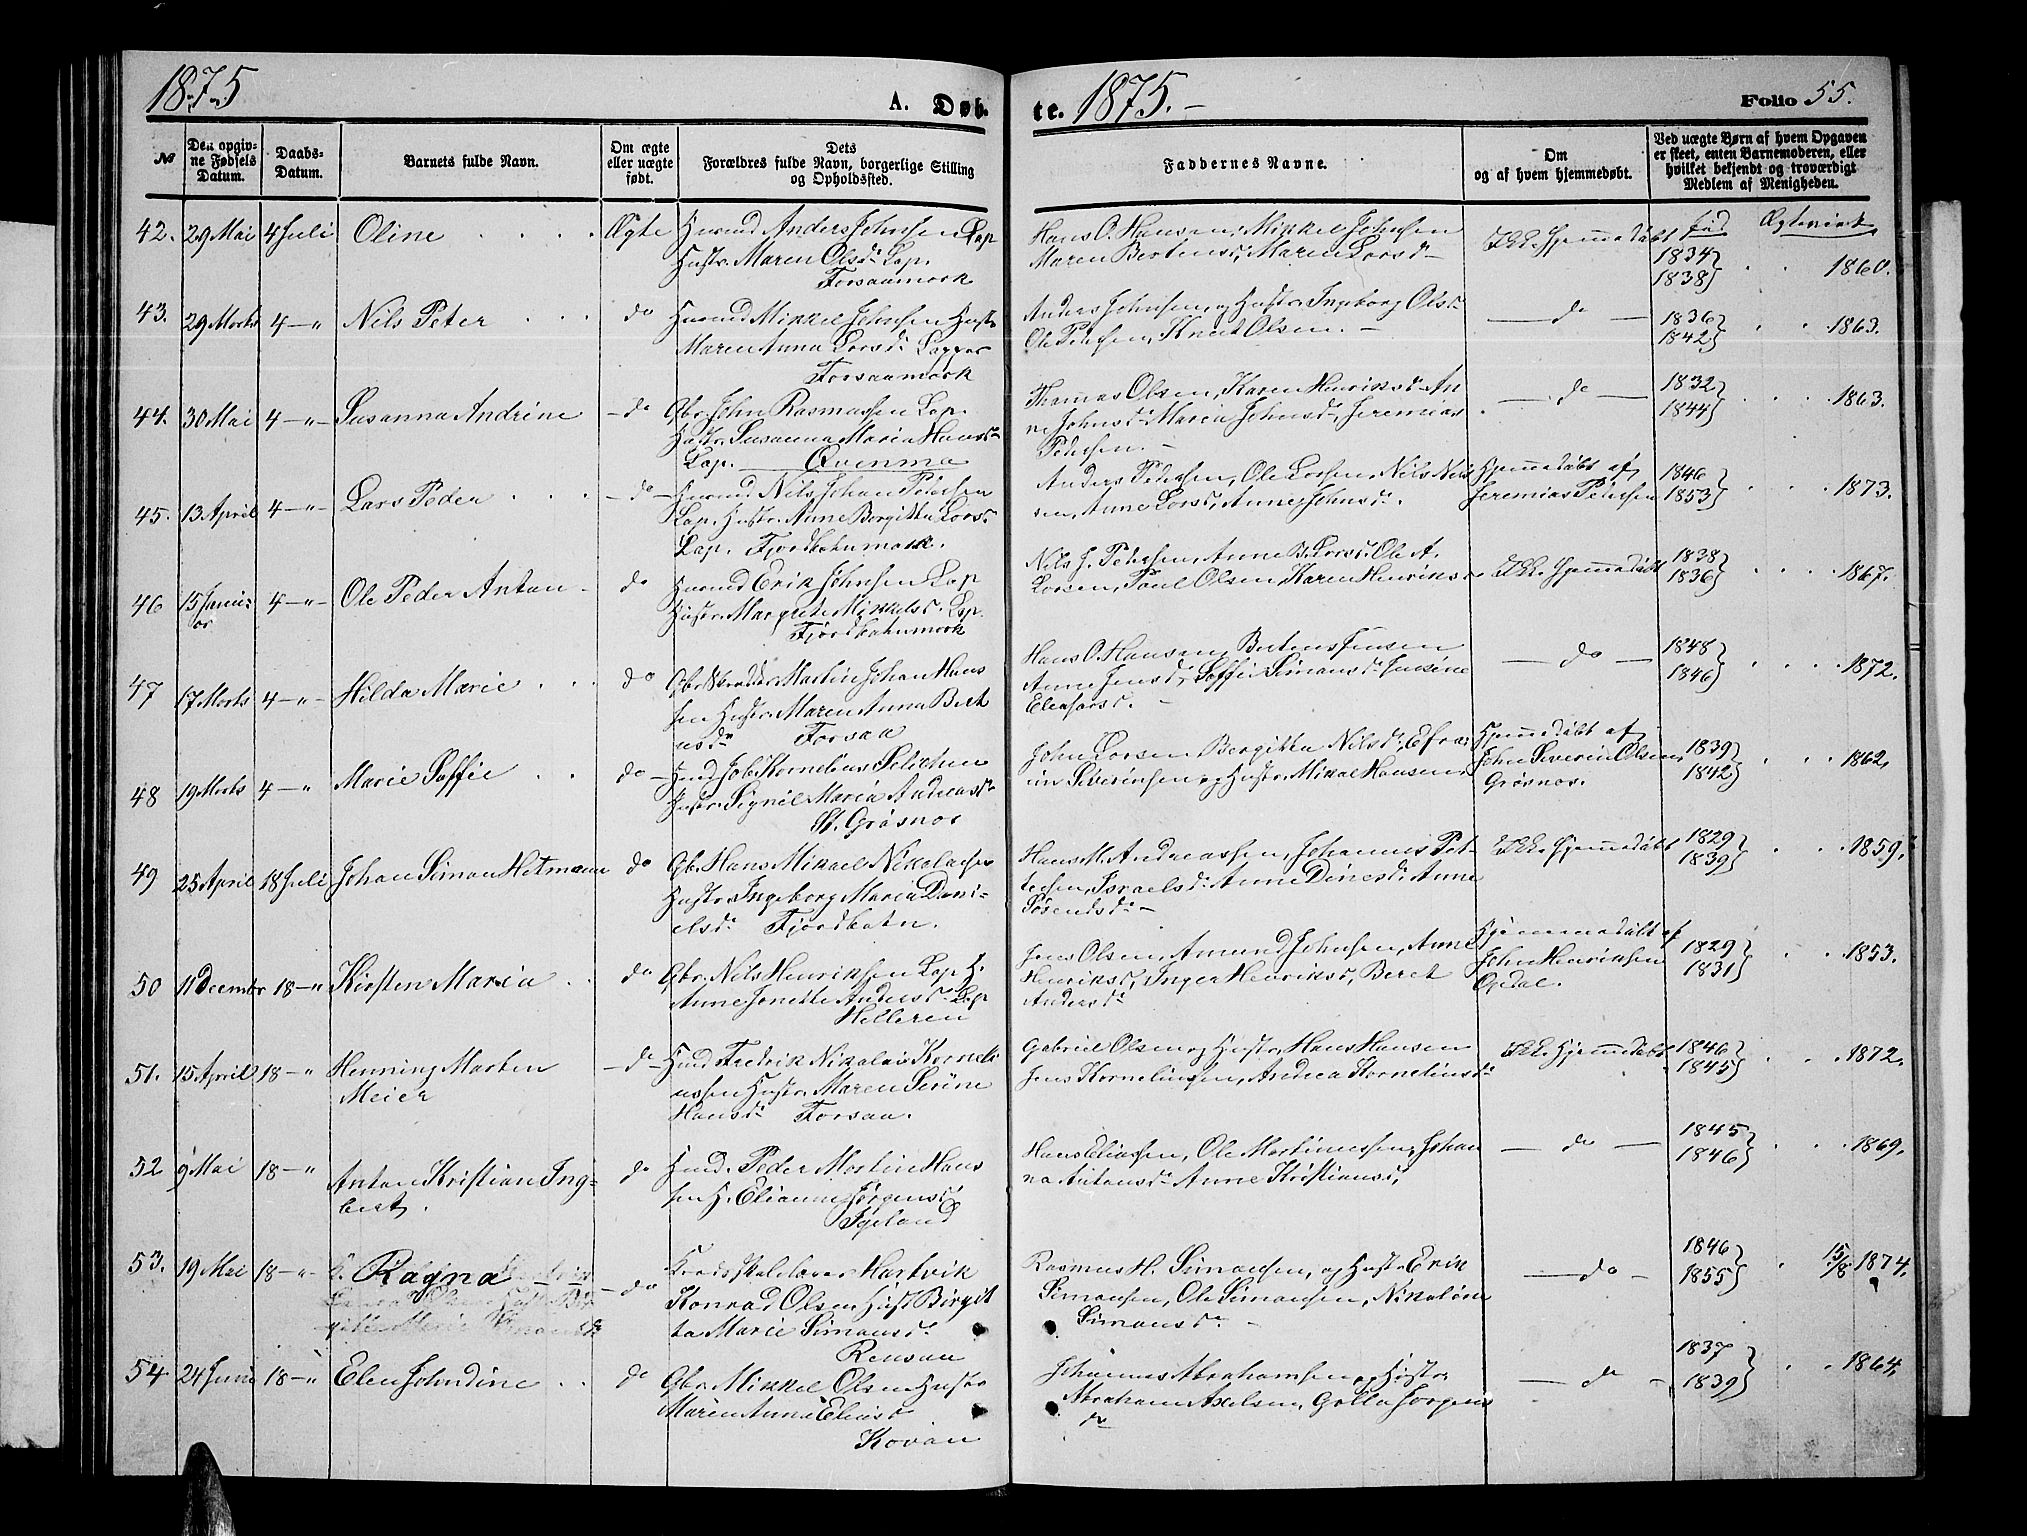 1875
A. Døb-
te. 1875. –
Folio 55.
№
Den opgivne Fødsels Datum.
Daabs-Datum.
Barnets fulde Navn.
Om ægte eller uægte født.
Dets Forældres fulde Navn, borgerlige Stilling og Opholdssted.
Faddernes Navne.
Om og af hvem hjemmedøbt.
Ved uægte Børn af hvem Opgaven er skeet, enten Barnemoderen, eller hvilket bekjendt og troværdigt Medlem af Menigheden.
42. 29 Mai 4 Juli Oline Ægte
Anders Johnsen Lap
Hustr. Maren Olsdr Lap.
Forsaamork
Hans O. Hansen, Mikkel Johnsen
Maren Bertensdr, Maren Larsd
Ikke hjemmedøbt
fød Ægteviet
1834
1838 1860.
43. 29 Marts 4 –"– Nils Peter do
Mikkel Johnsen Hustr
Maren Anna Larsdr Lapper
Forsaamork
Anders Johnsen og Hustr. Ingeborg Olsdr
Ole Petersen, Knut Olsen. –
– do –
1836
1842 1863.
44. 30 Mai 4 –"– Susanna Andrine – do
Gbr. John Rasmussen Lap.
Hustr. Susanna Maria Hansdr
Lap. Qvenmo
Thomas Olsen, Karen Henriksdr An
ne Johnsdr Maria Johnsdr, Jeremias
Petersen. –
– do –
1832
1844 1863.
45. 13 April 4 –"– Lars Peder – do –
Nils Johan Petersen
Lap. Hustr. Anne Bergitta Larsdr
Lap. Fjordbotnmark.
Anders Petersen, Ole Larsen, Nils Nil
sen, Anne Larsd, Anne Johnsdr.
Hjemmedøbt af
Jeremias Petersen
1846
1853 1873.
46 15 Januar 4 –"– Ole Peder Antan do
Erik Johnsen Lap
Hustr. Margrete Mikkelsdr. Lap.
Fjordbotnmork
Nils J. Petersen, Anne B. Larsdr Ole A.
Larsen, Paul Olsen, Karen Henriksdr
Ikke hjemmedøbt
1838
1836 1867.
47 17 Marts 4 –"– Hilda Marie do
Martin Johan Han
sen Hustr. Maren Anna Bert
nsdr Forsaa
Hans O. Hansen, Bertens Jensen
Anne Jensdr, Soffie Simonsdr Jensine
Eleasarsd. –
– do –
1848
1846 1872.
48 19 Marts 4 –"– Marie Soffie do –
Job Kornelius
Hustr. Signil Maria Andreasdr
St. Grøsnes
John Larsen Bergitta Nilsdr, Efra
im Siversen og Hustr. Mikal Hansen
Hjemmedøbt af
John Severin Olsen
Grøsnes.
1839
1842 1862.
49 25 April 18 Juli Johan Simon Hetmann do
Gbr. Hans Mikael Nikolaisen
Hustr. Ingeborg Maria Dani-
elsdr Fjordbotn.
Hans M. Andreassen, Johannes Pet-
tersen, Israelsdr Anne Dinesdr Anne
Ikke hjemmedøbt
1829
1839 1859.
50 11 December 18 –" Kirsten Maria do
Gbr. Nils Henriksen Lap H.
Anne Jonette Andersdr Lap
Helleren
Jens Olsen, Amund Johnsen, Anne
Henriksd, Inger Henriksd, Beret
Andersdr
Hjemmedøbt af
John Henriksen
Opdal.
1829
1831 1853.
51. 15 April 18 –" Henning Marten
Meier – do –
Fredrik Nikolai Korneli
ussen Hustr. Maren Serine
Hansdr Forsaa.
Gabriel Olsen og Hustr, Hans Hansen
Jens Korneliussen, Andrea Korneliusdr
Ikke hjemmedøbt
1846
1845 1872.
52 9 Mai 18 –" Antan Kristian Ing-
bert. do
Peder Mortin Han
sen H. Elianna Jørgensdr
Igeland
Hans Eliassen, Ole Martinussen, Johan
na Antonsdr Anne Kristiansd,
– do –
1845
1846 1869.
53. 19 Mai 18 –"– Ragna – do
Kredsskolelærer Hartvik
Konrad Olsen Hust Birgit
ta Marie Simonsdr
Rensaa
Rasmus H. Simonsen, og Hustr. Erik
Simonsen, Ole Simonsen, Nikoline
Simonsdr –
– do –
1846
1855 15/8 1874.
54 24 Juni 18 –" Elen Johndine do
Gbr. Mikkel Olsen Hustr
Maren Anna Eliasd
Kovan
Johannes Abrahamsen og Hustr
Abraham Axelsen, Golla Jorgens
dr
– do –
1837
1839 1864.